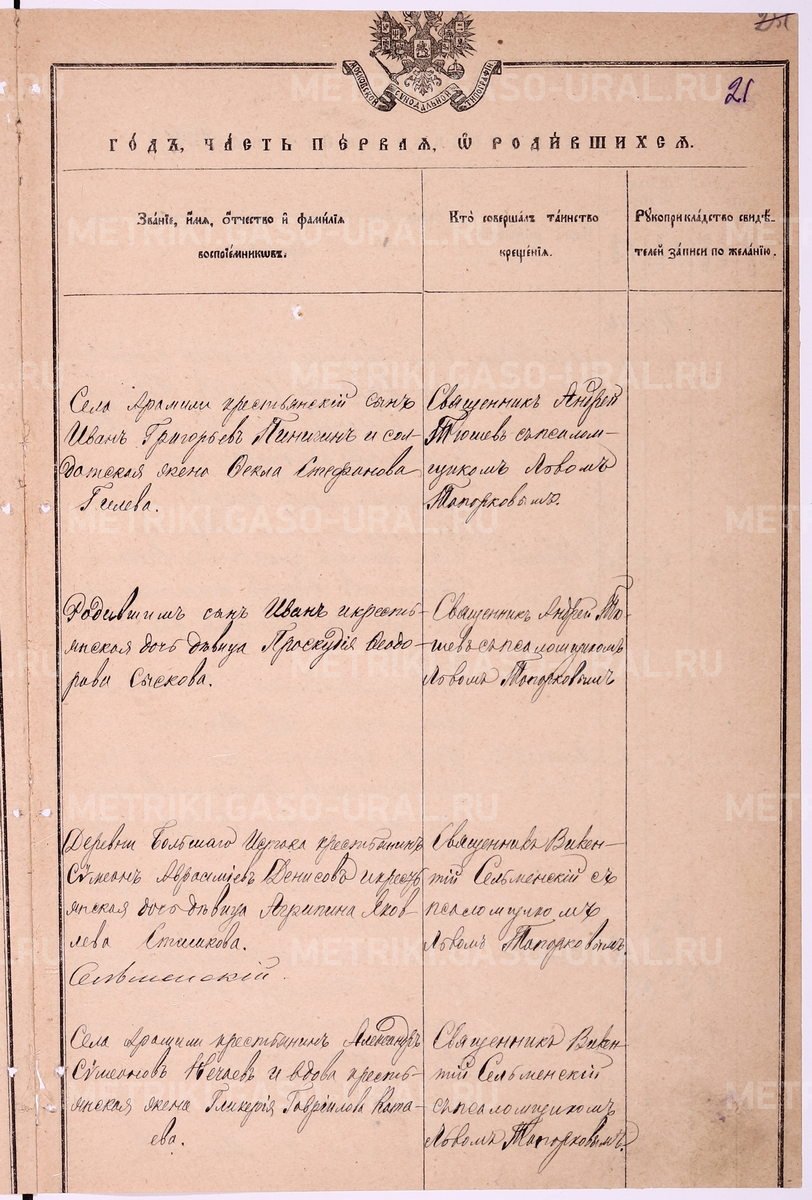 21
МОСКОВСКОЙ СѴНОДАЛЬНОЙ ТИПОГРАФІИ
METRIKI.GASO-URAL.RU
ГО́ДЪ, ЧА́СТЬ ПЕ́РВАЯ, Ѡ҆ РОДИ́ВШИХСЯ.
Зва́нїе, и҆́мя, ѻ҆́тчество и҆ фами́лїя
воспрїе́мникѡвъ.
Кто̀ соверша́лъ та́инство
креще́нїя.
Рꙋкоприкла́дство свидѣ́-
телей за́писи по жела́нїю.
Села Арамили крестьянскій сынъ
Иванъ Григорьевъ Пинигинъ и сол-
датская жена Ѳекла Стефанова
Гилева.
Священникъ Андрей
Тюшевъ съ псалом-
щикомъ Львомъ
Топорковымъ.
Родившимъ сынъ Иванъ и кресть-
янская дочь дѣвица Праскудія Ѳеодо-
рова Сыскова.
Священникъ Андрей Тю-
шевъ съ псаломщикомъ
Львомъ Топорковымъ
Деревни Большаго Истока крестьянинъ
Сѵмеонъ Аврааміевъ Денисовъ и кресть
янская дочь дѣвица Агрипина Яков-
лева Сташкова.
Сельменскій.
Священникъ Викен-
тій Сельменскій съ
псаломщикомъ
Львомъ Топорковымъ
Села Арамили крестьянинъ Александръ
Сѵмеоновъ Нечаевъ и вдова кресть-
янская жена Гликерія Гавріилова Ката-
ева.
Священникъ Викен-
тій Сельменскій
съ псаломщикомъ
Львомъ Топорковымъ.